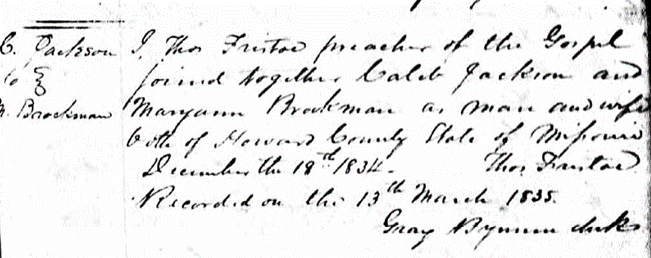 C. Jackson
to
M. Brockman
I, Thos Fristoe preacher of the Gospel
joined together Caleb Jackson and
Maryann Brockman as man and wife
both of Howard County State of Missouri
December the 18th 1834. Thos Fristoe
Recorded on the 13th March 1835.
Gray Bynum clerk